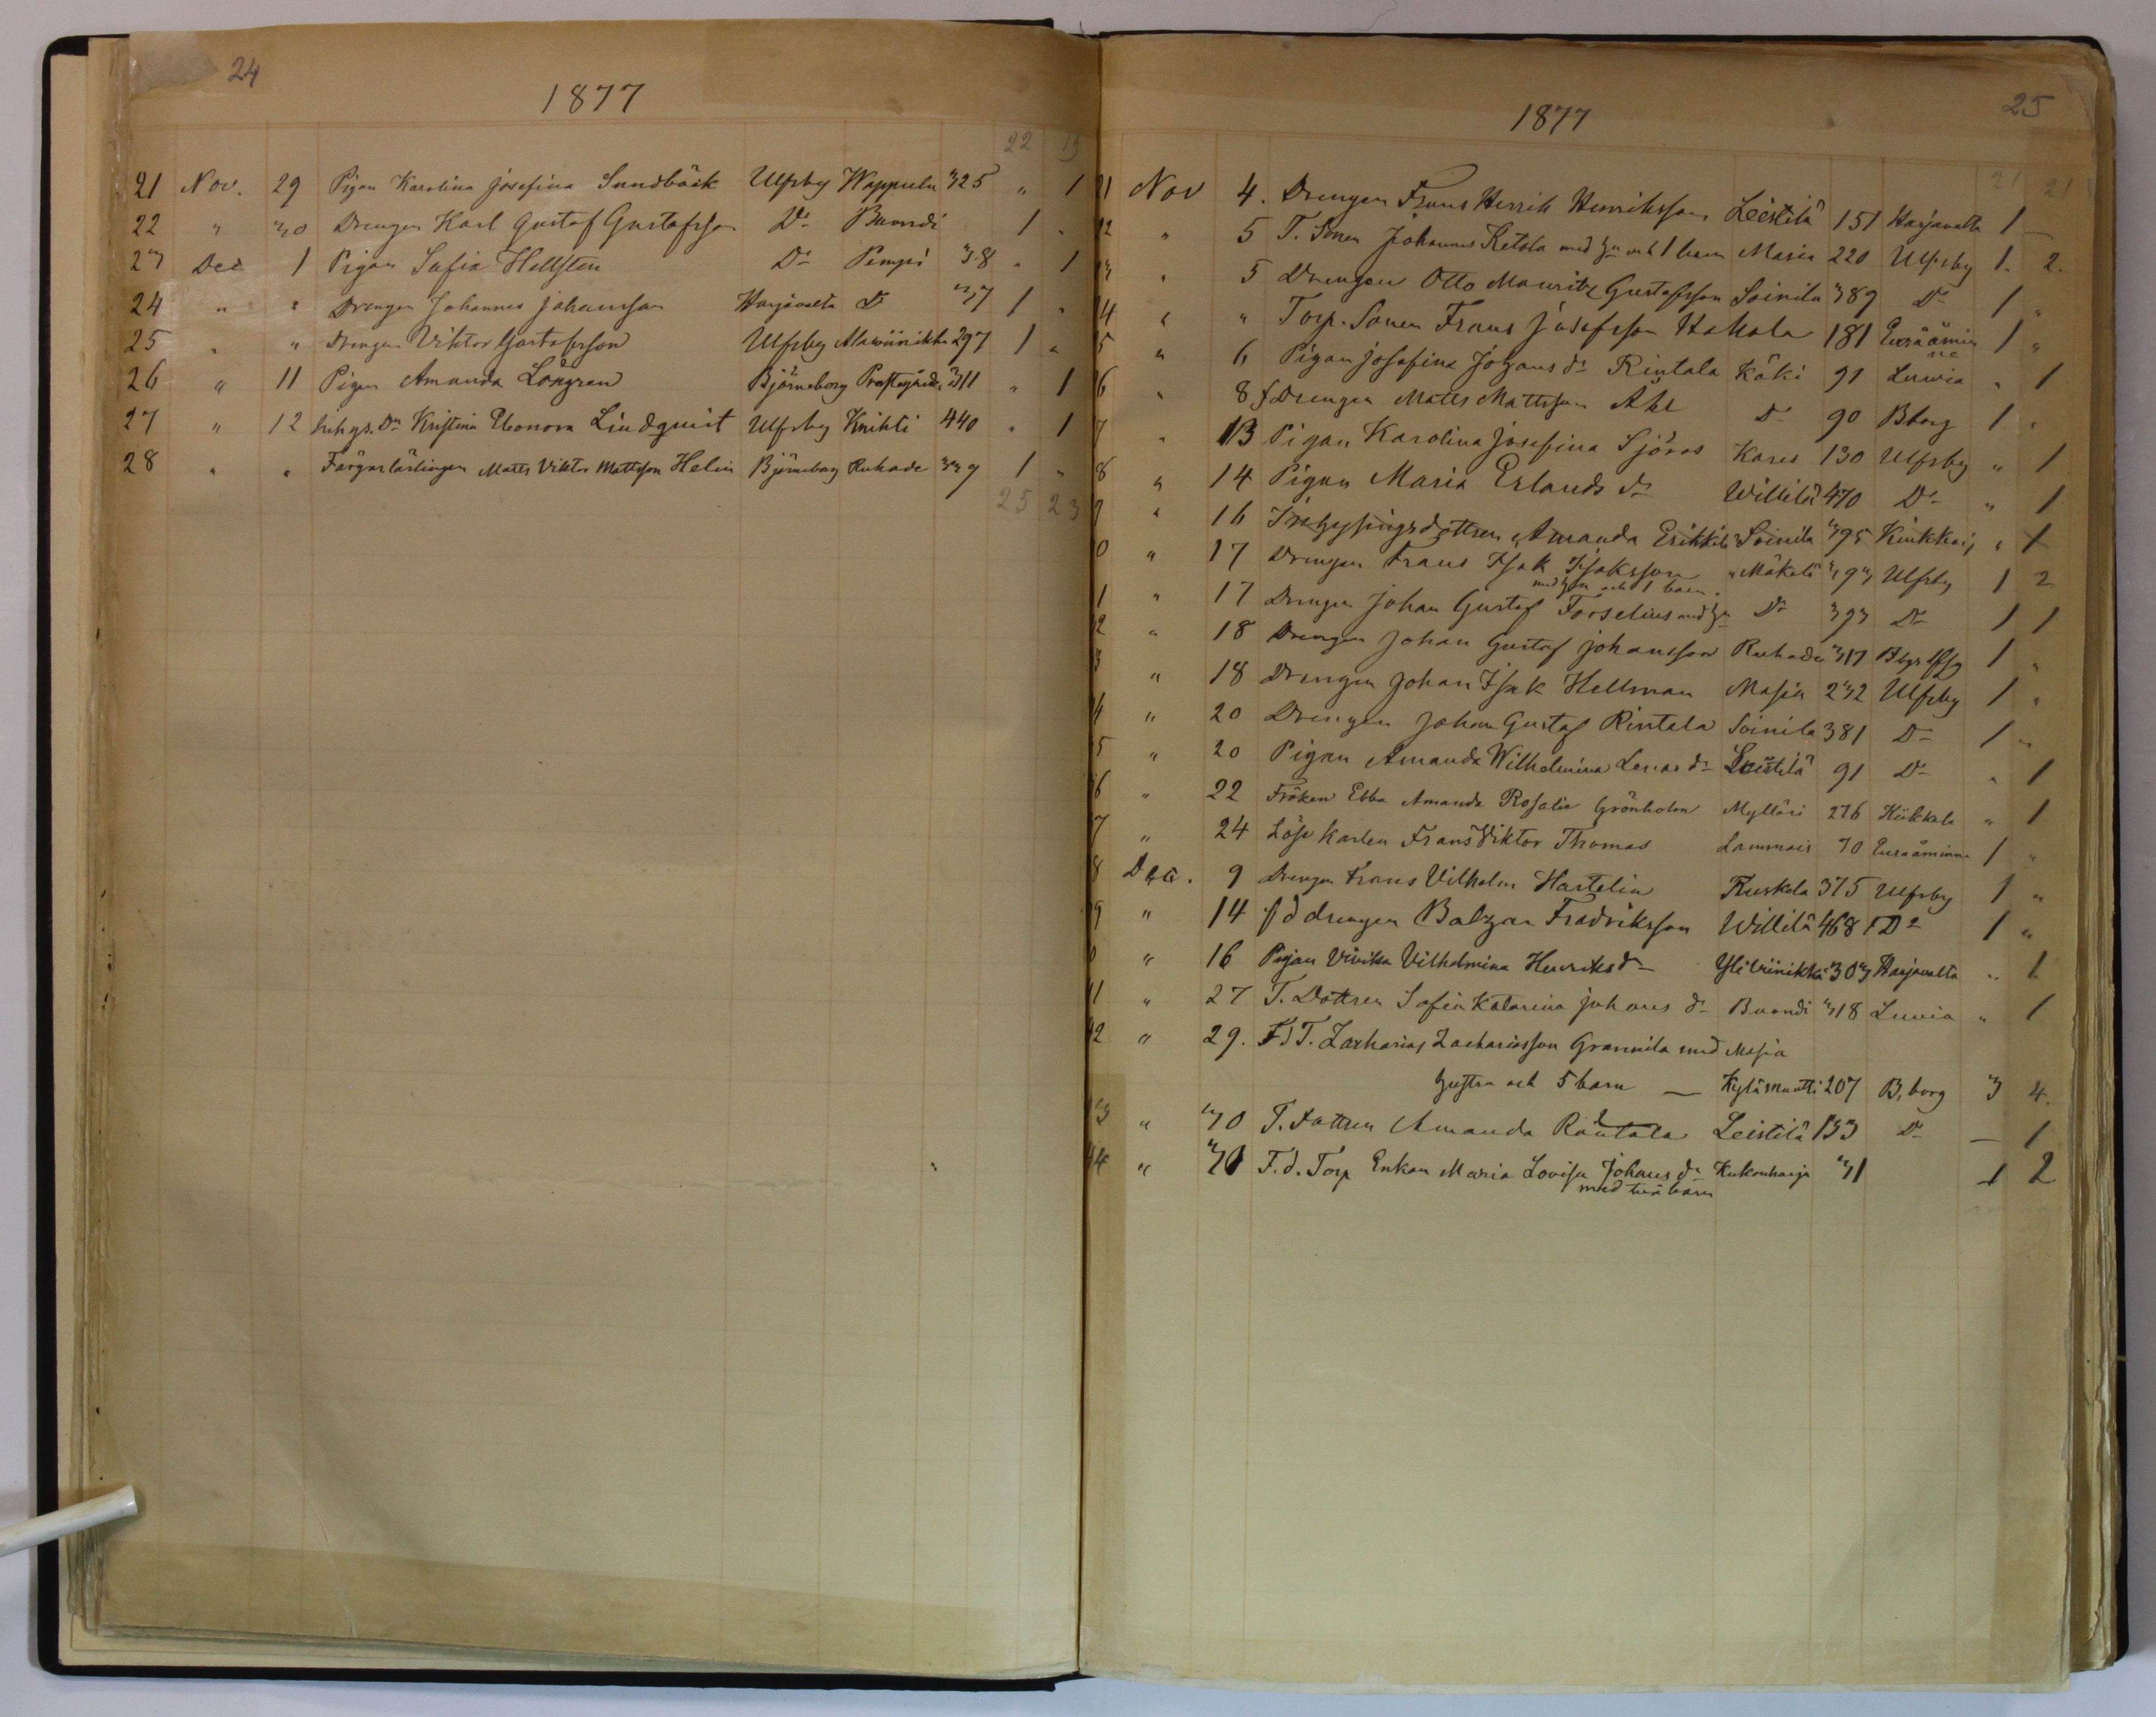 24
1877
22 13
21 Nov. 29 Pigan Karolina Josefina Sundbäck Ulfsby Wappula 325 " 1
22 " 30 Drengen Karl Gustaf Gustafsson Do Buondi 1 "
23 Dec 1 Pigan Sofia Hellsten Do Pempi 38 " 1
24 " " Drengen Johannes Johansson Harjavalta Do 37 1 "
25 " " Drengen Viktor Gustafsson Ulfsby Alawiirikka 297 1 "
26 " 11 Pigan Amanda Löngren Björneborg 311 " 1
27 " 12 Inhys. Dn Kristina Eleonora Lindquist Ulfsby Knihti 440 " 1
28 " " Färgarlärlingen Matts Viktor Mattsson Helin Björneborg Ruhade 339 1 "
25 23
25
1877
21 21
21 Nov 4. Drengen Frans Henrik Henriksson Leistilä 151 Harjavalta 1 —
22 " 5 T. Sonen Johannes Ketola med hu och 1 barn Masia 220 Ulfsby 1. 2.
3 " 5 Drengen Otto Mauritz Gustafsson Soinila 389 Do 1 "
4 " " Torp. Sonen Frans Josefsson Hakala 181 Euraåminne 1 "
5 " 6 Pigan Josefina Johans dr Rintala Käki 91 Luvia " 1
6 " 8 Drengen Matts Mattsson Åhl Do 90 Bborg 1 "
7 " 13 Pigan Karolina Josefina Sjöros Kares 130 Ulfsby " 1
8 " 14 Pigan Maria Erlands dr Willilä 470 Do " 1
9 " 16 Inhysingsdottren Amanda Erikkilä Soinila 395 " 1
0 " 17 Drengen Frans Isak Isaksson Mäkelä 393 Ulfsby 1 2
med hu och 1 barn.
1 " 17 Drengen Johan Gustaf Forselius med hu Do 393 Do 1 1
2 " 18 Drengen Johan Gustaf Johansson Ruhade 317 1 "
3 " 18 Drengen Johan Isak Hellman Masia 232 Ulfsby 1 "
4 " 20 Drengen Johan Gustaf Rintala Soinila 381 Do 1 "
5 " 20 Pigan Amanda Wilhelmina Lenas dr Leistilä 91 Do " 1
6 " 22 Fröken Ebba Amanda Rosalie Grönholm Mylläri 276 Kiikkala " 1
7 " 24 Lösk karlen Frans Viktor Thomas Lammais 70 Euraåminne 1 "
8 Dec. 9 Drengen Frans Vilhelm Hartelin Ruskela 375 Ulfsby 1 "
9 " 14 fd drengen Balzar Fredriksson Willilä 468 Do 1 "
0 " 16 Pigan Vivika Vilhelmina Henriks dr Yliviirikka 303 Harjavalta " 1
41 " 27 T. Dottren Sofia Katarina Johans dr Buondi 318 Luvia " 1
42 " 29. Fd T. Zacharias Zachariasson Grannila med Masia
hustru och 5 barn — Kylämuotti 207 B,borg 3 4.
43 " 30 T. dottren Amanda Rautala Leistilä 153 Do — 1
44 " 31 F.d. Torp Enkan Maria Lovisa Johans dr Kukonharja 31 1 2
med två barn